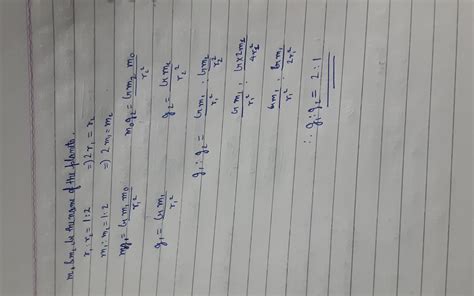 m₁ & m₂ be the name of the planets.
r₁ : r₂ = 1:2 => 2r₁ = r₂
m₁ : m₂ = 1:2 => 2m₁ = m₂
mg₁ = G m₁ m₀ / r₁² m₀g₂ = G m₂ m₀ / r₂²
g₁ = G m₁ / r₁² g₂ = G m₂ / r₂²
g₁ : g₂ = G m₁ / r₁² : G m₂ / r₂²
G m₁ / r₁² : G × 2m₁ / 4r₁²
G m₁ / r₁² : G m₁ / 2r₁²
∴ g₁ : g₂ = 2 : 1